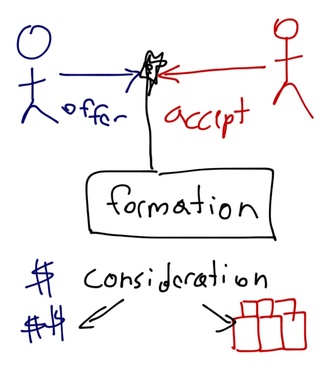 offer
accept
formation
$ consideration
$$